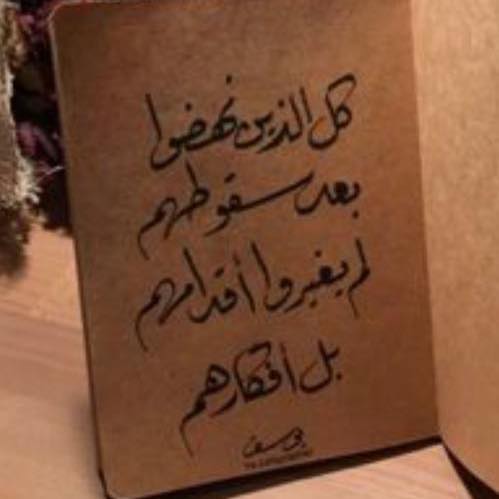 كل الذين نهضوا
بعد سقوطهم
لم يغيروا أقدامهم
بل أفكارهم